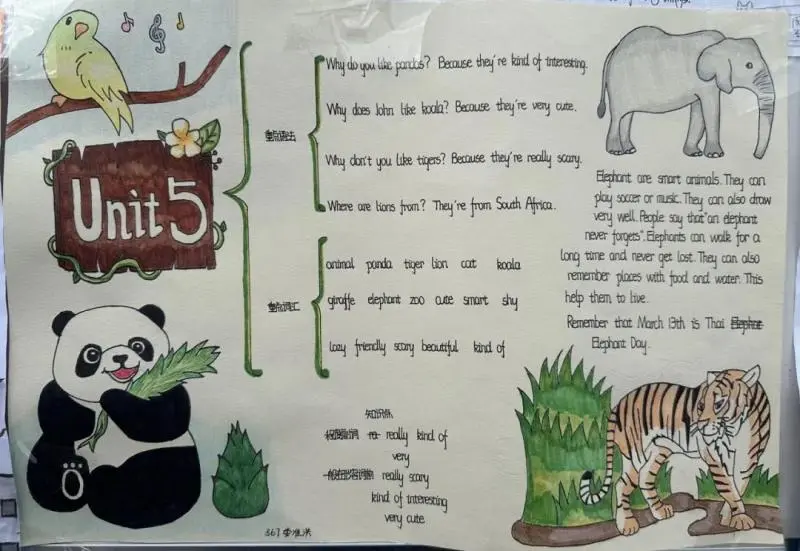 Unit 5
重点语法
Why do you like pandas? Because they're kind of interesting.
Why does John like koala? Because they're very cute.
Why don't you like tigers? Because they're really scary.
Where are lions from? They're from South Africa.
重点词汇
animal panda tiger lion cat koala
giraffe elephant zoo cute smart shy
lazy friendly scary beautiful kind of
really kind of
very
really scary
kind of interesting
very cute
Elephant are smart animals. They can
play soccer or music. They can also draw
very well. People say that "an elephant
never forgets". Elephants can walk for a
long time and never get lost. They can also
remember places with food and water. This
help them to live.
Remember that March 13th is Thai Elephant
Elephant Day.